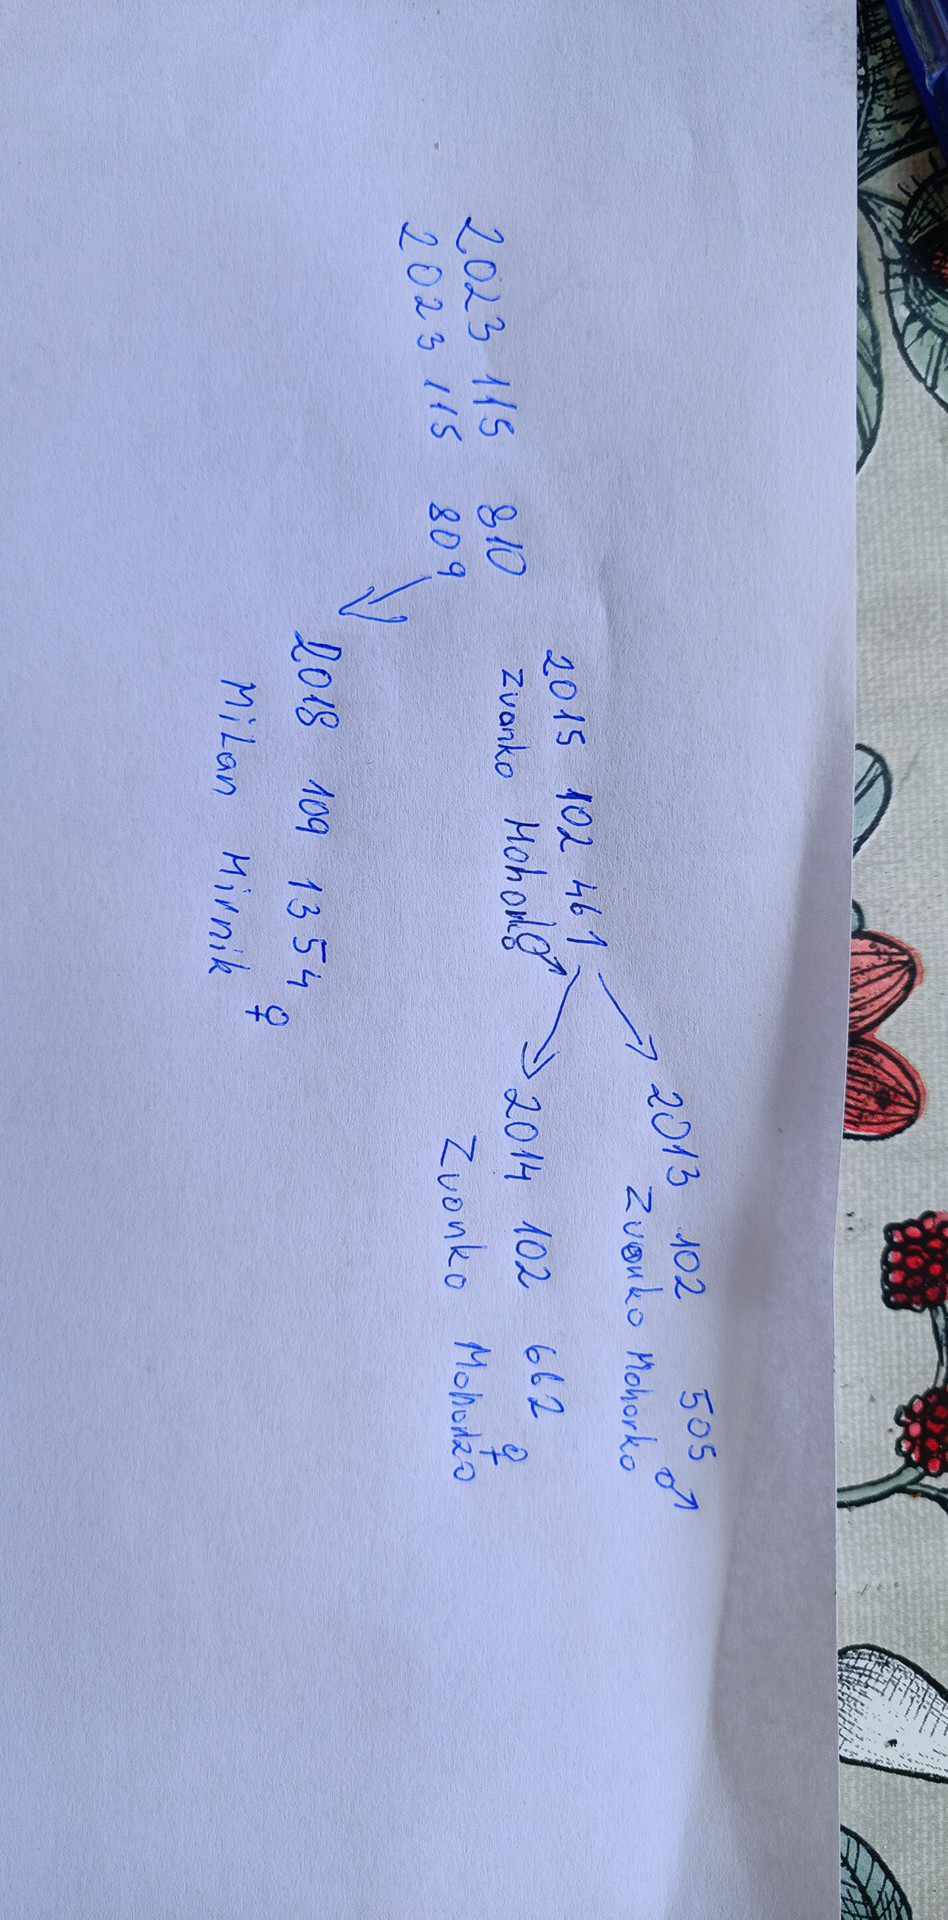 2013 102 505 ♂
Zvonko Mohorko
2015 102 461
Zvonko Mohorko ♂
2014 102 662
♀
Zvonko Mohorko
2023 115 810
2023 115 809
2018 109 1354
♀
Milan Mirnik